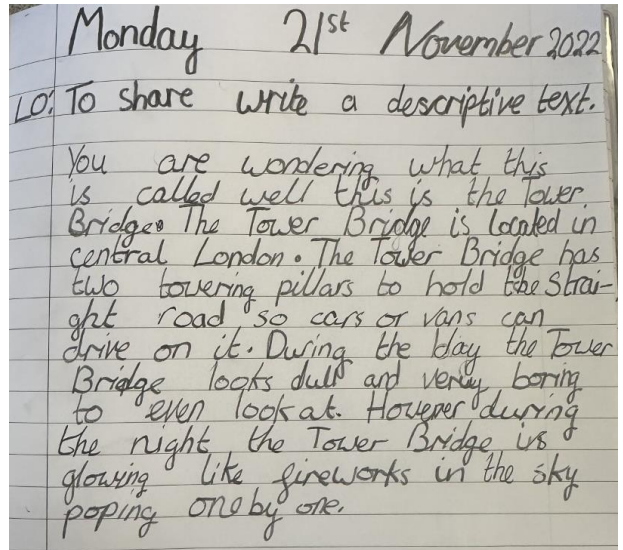 Monday 21st November 2022
LO: To share write a descriptive text.
You are wondering what this
is called well this is the Tower
Bridge. The Tower Bridge is located in
central London. The Tower Bridge has
two towering pillars to hold the strai-
ght road so cars or vans can
drive on it. During the day the Tower
Bridge looks dull and very boring
to even look at. However during
the night the Tower Bridge is
glowing like fireworks in the sky
poping one by one.